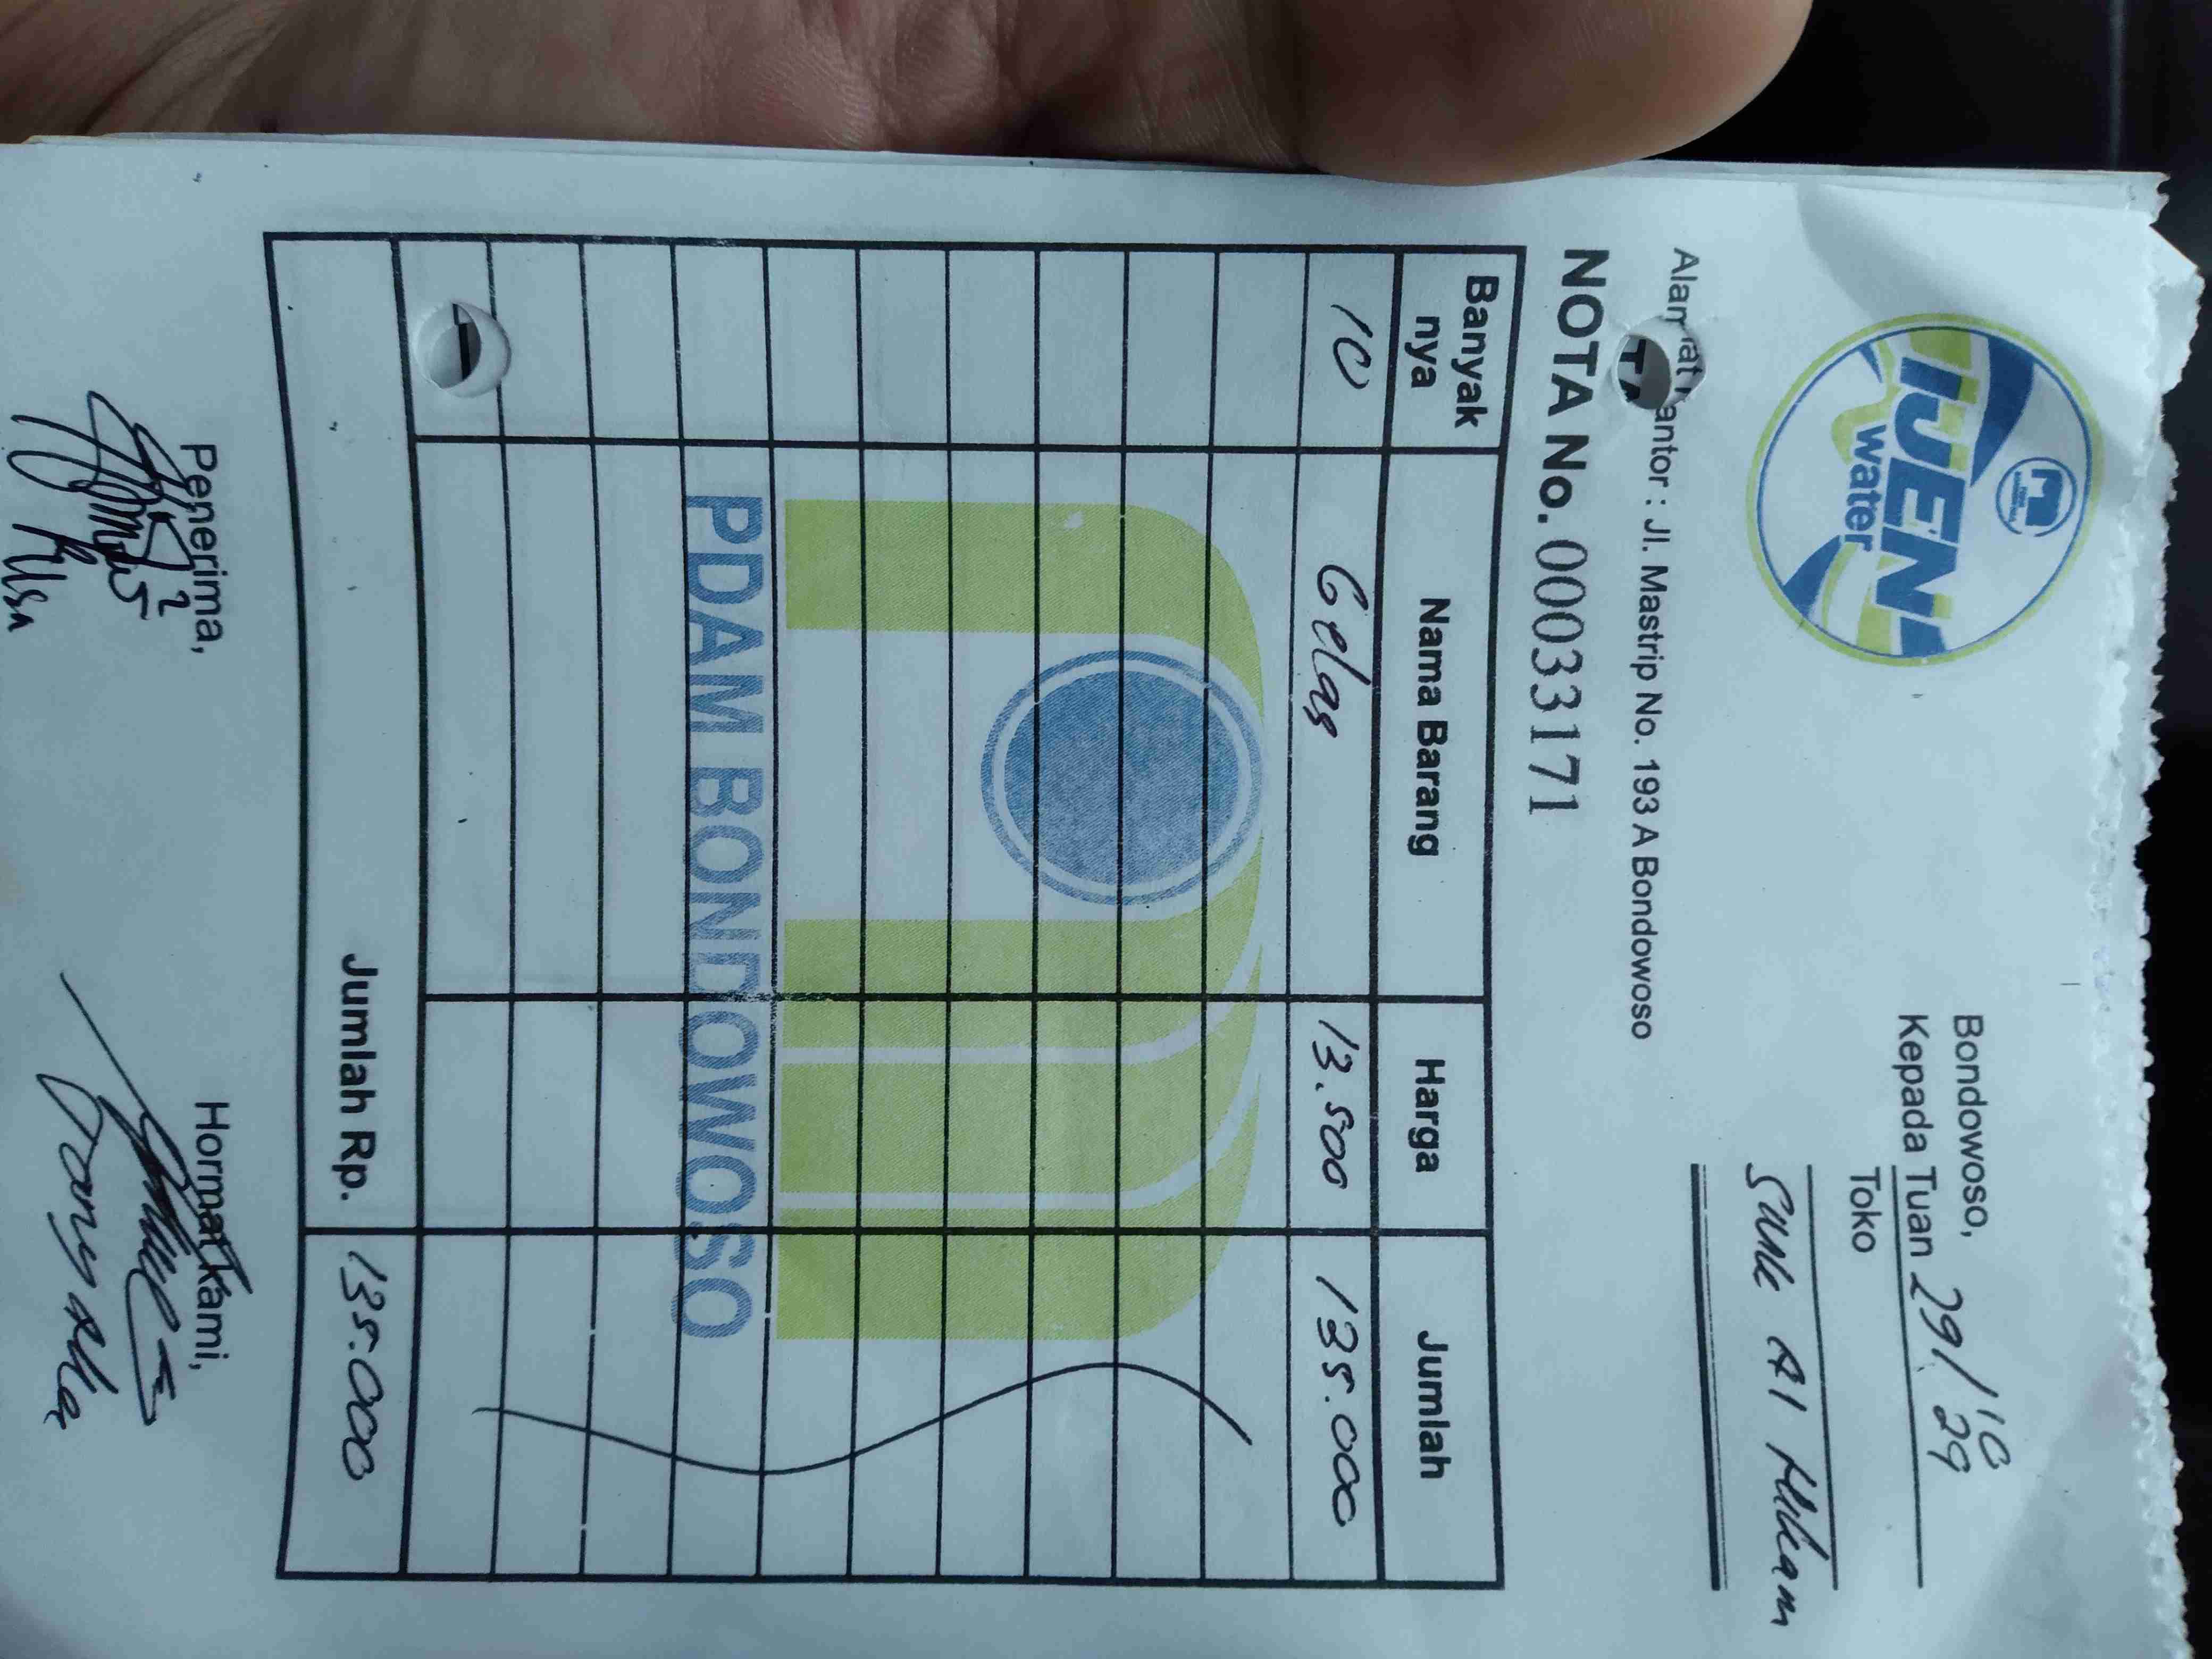 IJEN
water
Bondowoso, 29/10
Kepada Tuan 29
Toko
Al Hikam
Alamat Kantor : Jl. Mastrip No. 193 A Bondowoso
NOTA No. 00033171
Banyak nya Nama Barang Harga Jumlah
10 Gelas 13.500 135.000
PDAM BONDOWOSO
Jumlah Rp. 135.000
Penerima, Hormat kami,